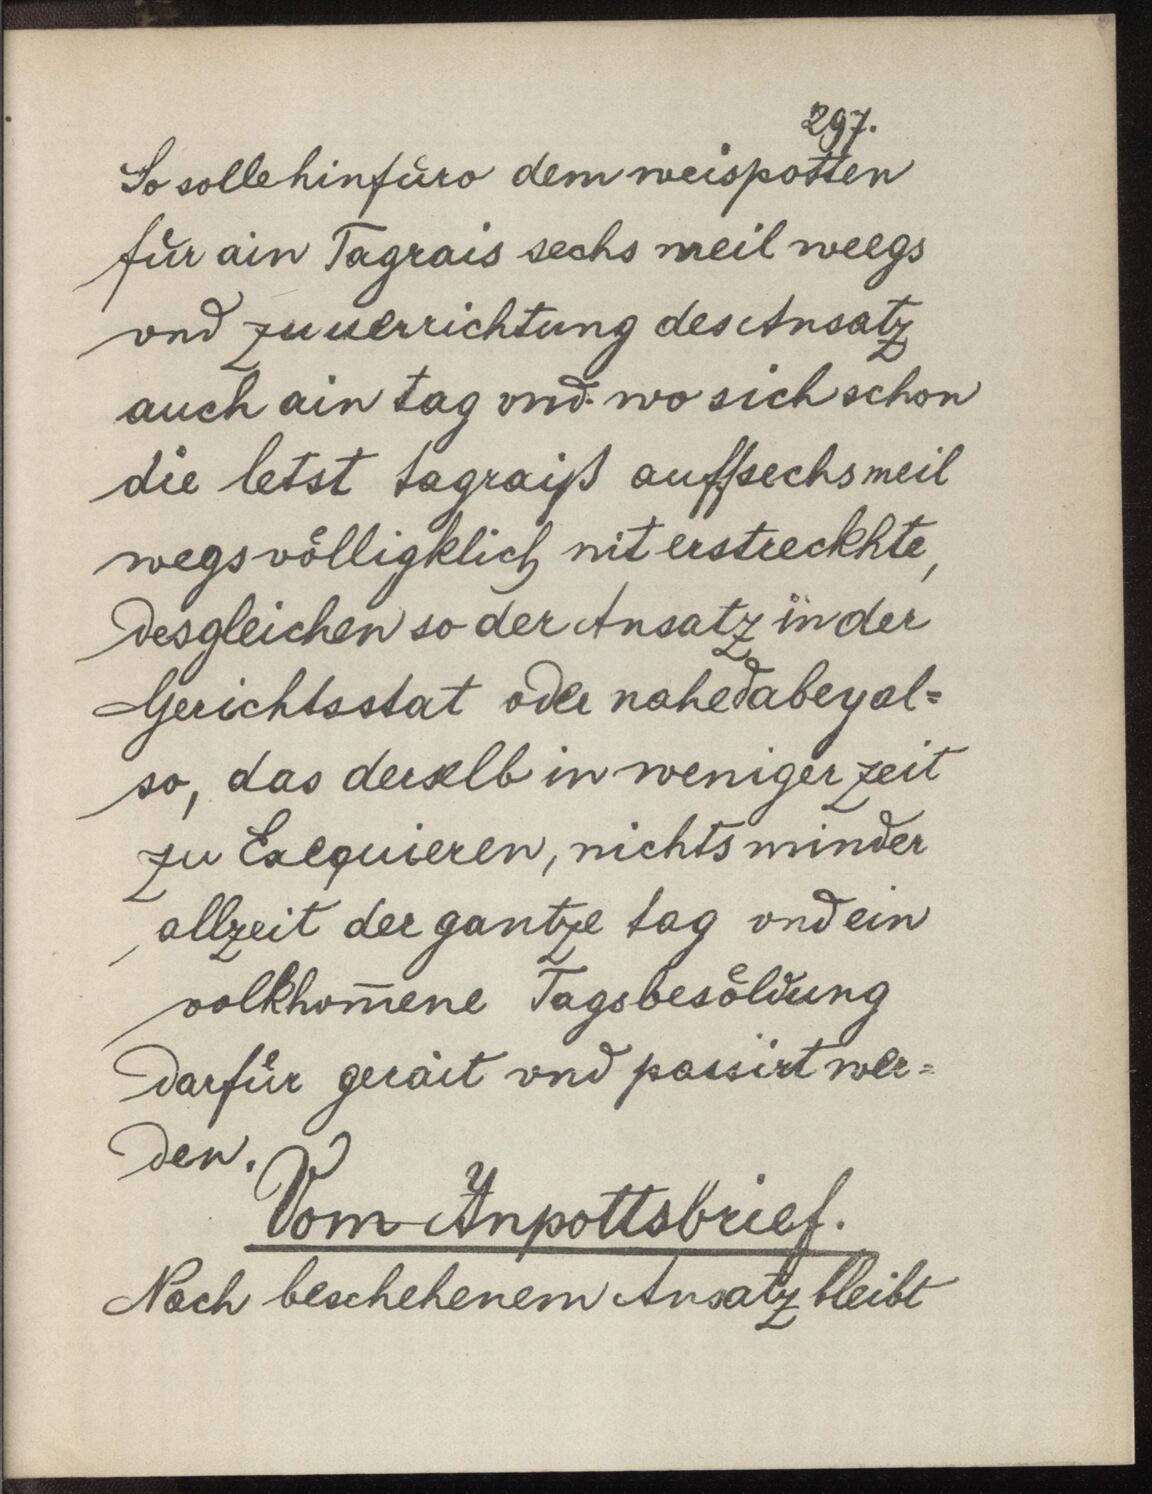 297.
So solle hinfüro dem weispotten
für ain Tagrais sechs meil weegs
vnd zuuerrichtung des Ansatz
auch ain tag vnd wo sich schon
die letst tagraiß auff sechs meil
wegs völligklich nit erstreckhte,
desgleichen so der Ansatz in der
Gerichtsstat oder nahe dabey al=
so, das derselb in weniger zeit
zu Exequieren, nichts minder
allzeit der gantze tag vnd ein
volkhom̄ene Tagsbesöldung
darfür gerait vnd passirt wer=
den.
Vom Anpottsbrief.
Nach beschehenem Ansatz bleibt